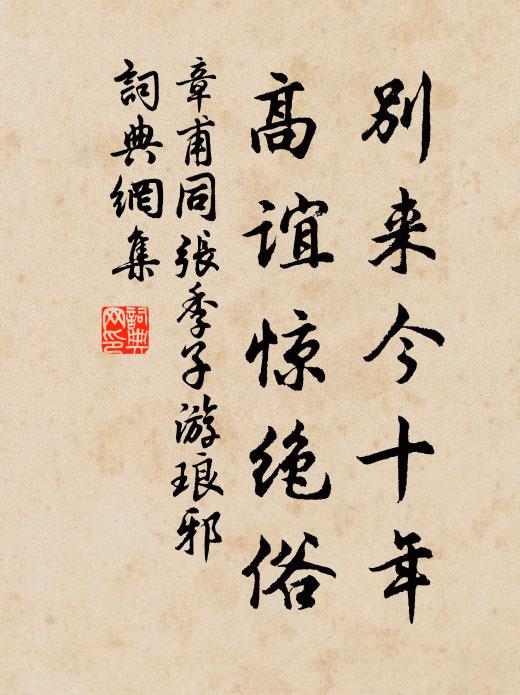 别来今十年
高谊惊绝俗
章甫同張季子游琅邪
詞典網集
詞典网印